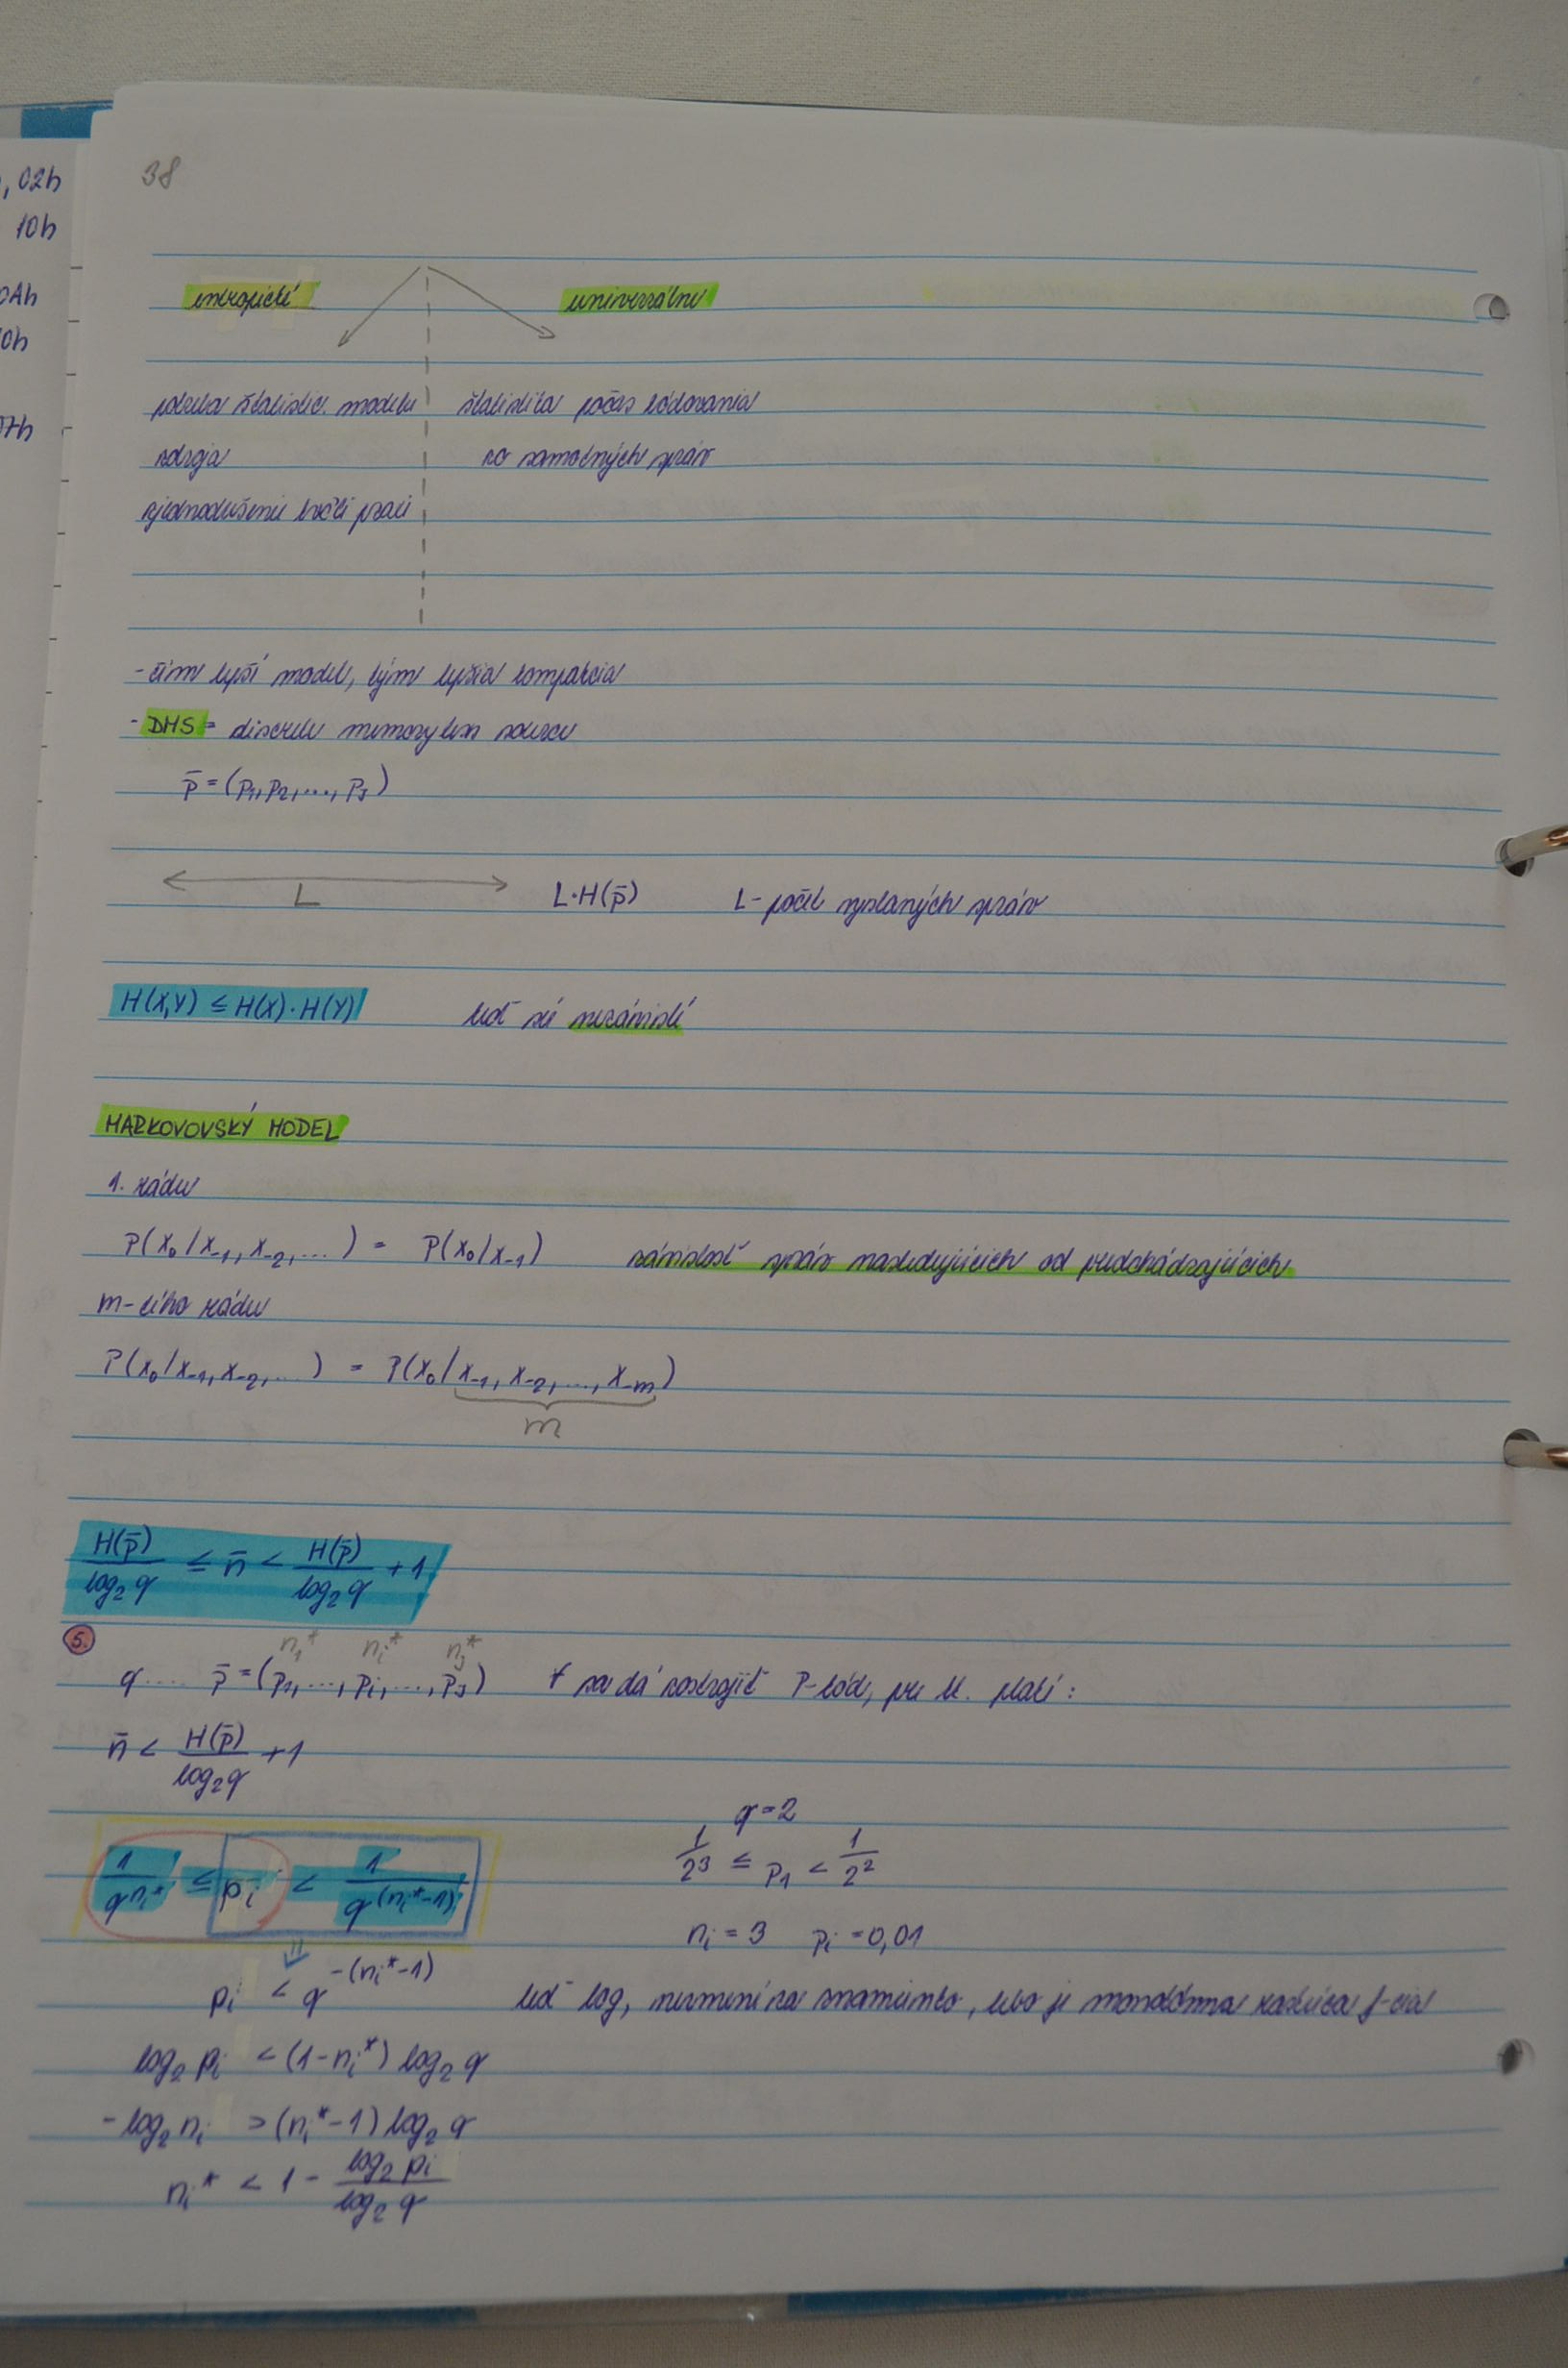 , 02h
10h
0Ah
0h
07h
38
entropické
univerzálne
potreba štatistic. modelu
zdroja
zjednodušenie kvôli praxi
štatistika počas kódovania
zo samotných správ
- čím lepší model, tým lepšia kompakcia
- DMS = discrete memoryless source
p̄ = (p₁, p₂, ..., p_J)
L
L·H(p̄)
L - počet vyslaných správ
H(X,Y) ≤ H(X)·H(Y)
keď sú nezávislé
MARKOVOVSKÝ MODEL
1. rádu
P(x₀/x₋₁, x₋₂, ...) = P(x₀/x₋₁)
závislosť správ nasledujúcich od predchádzajúcich
m-tého rádu
P(x₀/x₋₁, x₋₂, ...) = P(x₀/x₋₁, x₋₂, ..., x₋ₘ)
m
H(p̄)/log₂q ≤ n̄ < H(p̄)/log₂q + 1
5.
n₁* nᵢ* n_J*
q .... p̄ = (p₁, ..., pᵢ, ..., p_J) sa dá zostrojiť P-kód, pre kt. platí:
n̄ < H(p̄)/log₂q + 1
1/q^(nᵢ*) ≤ pᵢ < 1/q^(nᵢ*-1)
q = 2
1/2³ ≤ p₁ < 1/2²
nᵢ = 3 pᵢ = 0,01
⇓
pᵢ < q^(-(nᵢ*-1))
keď log, nezmení sa znamienko, lebo je monotónna rastúca f-cia
log₂ pᵢ < (1-nᵢ*) log₂ q
-log₂ nᵢ > (nᵢ*-1) log₂ q
nᵢ* < 1 - log₂ pᵢ/log₂ q